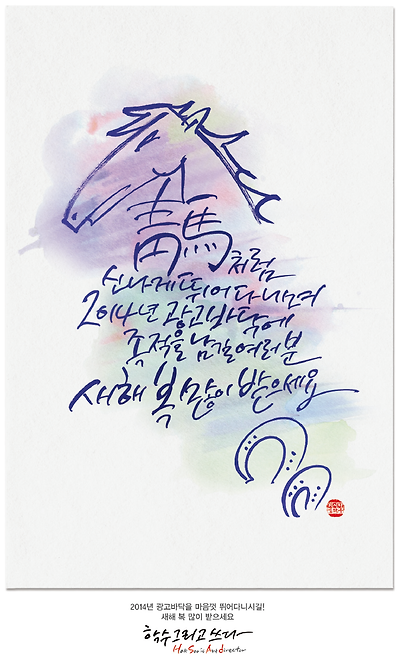 青馬처럼
신나게 뛰어다니며
2014년 광고바닥에
족적을 남길 여러분
새해 복 많이 받으세요
2014년 광고바닥을 마음껏 뛰어다니시길!
새해 복 많이 받으세요
학수그리고쓰다
Hak Soo is Art director